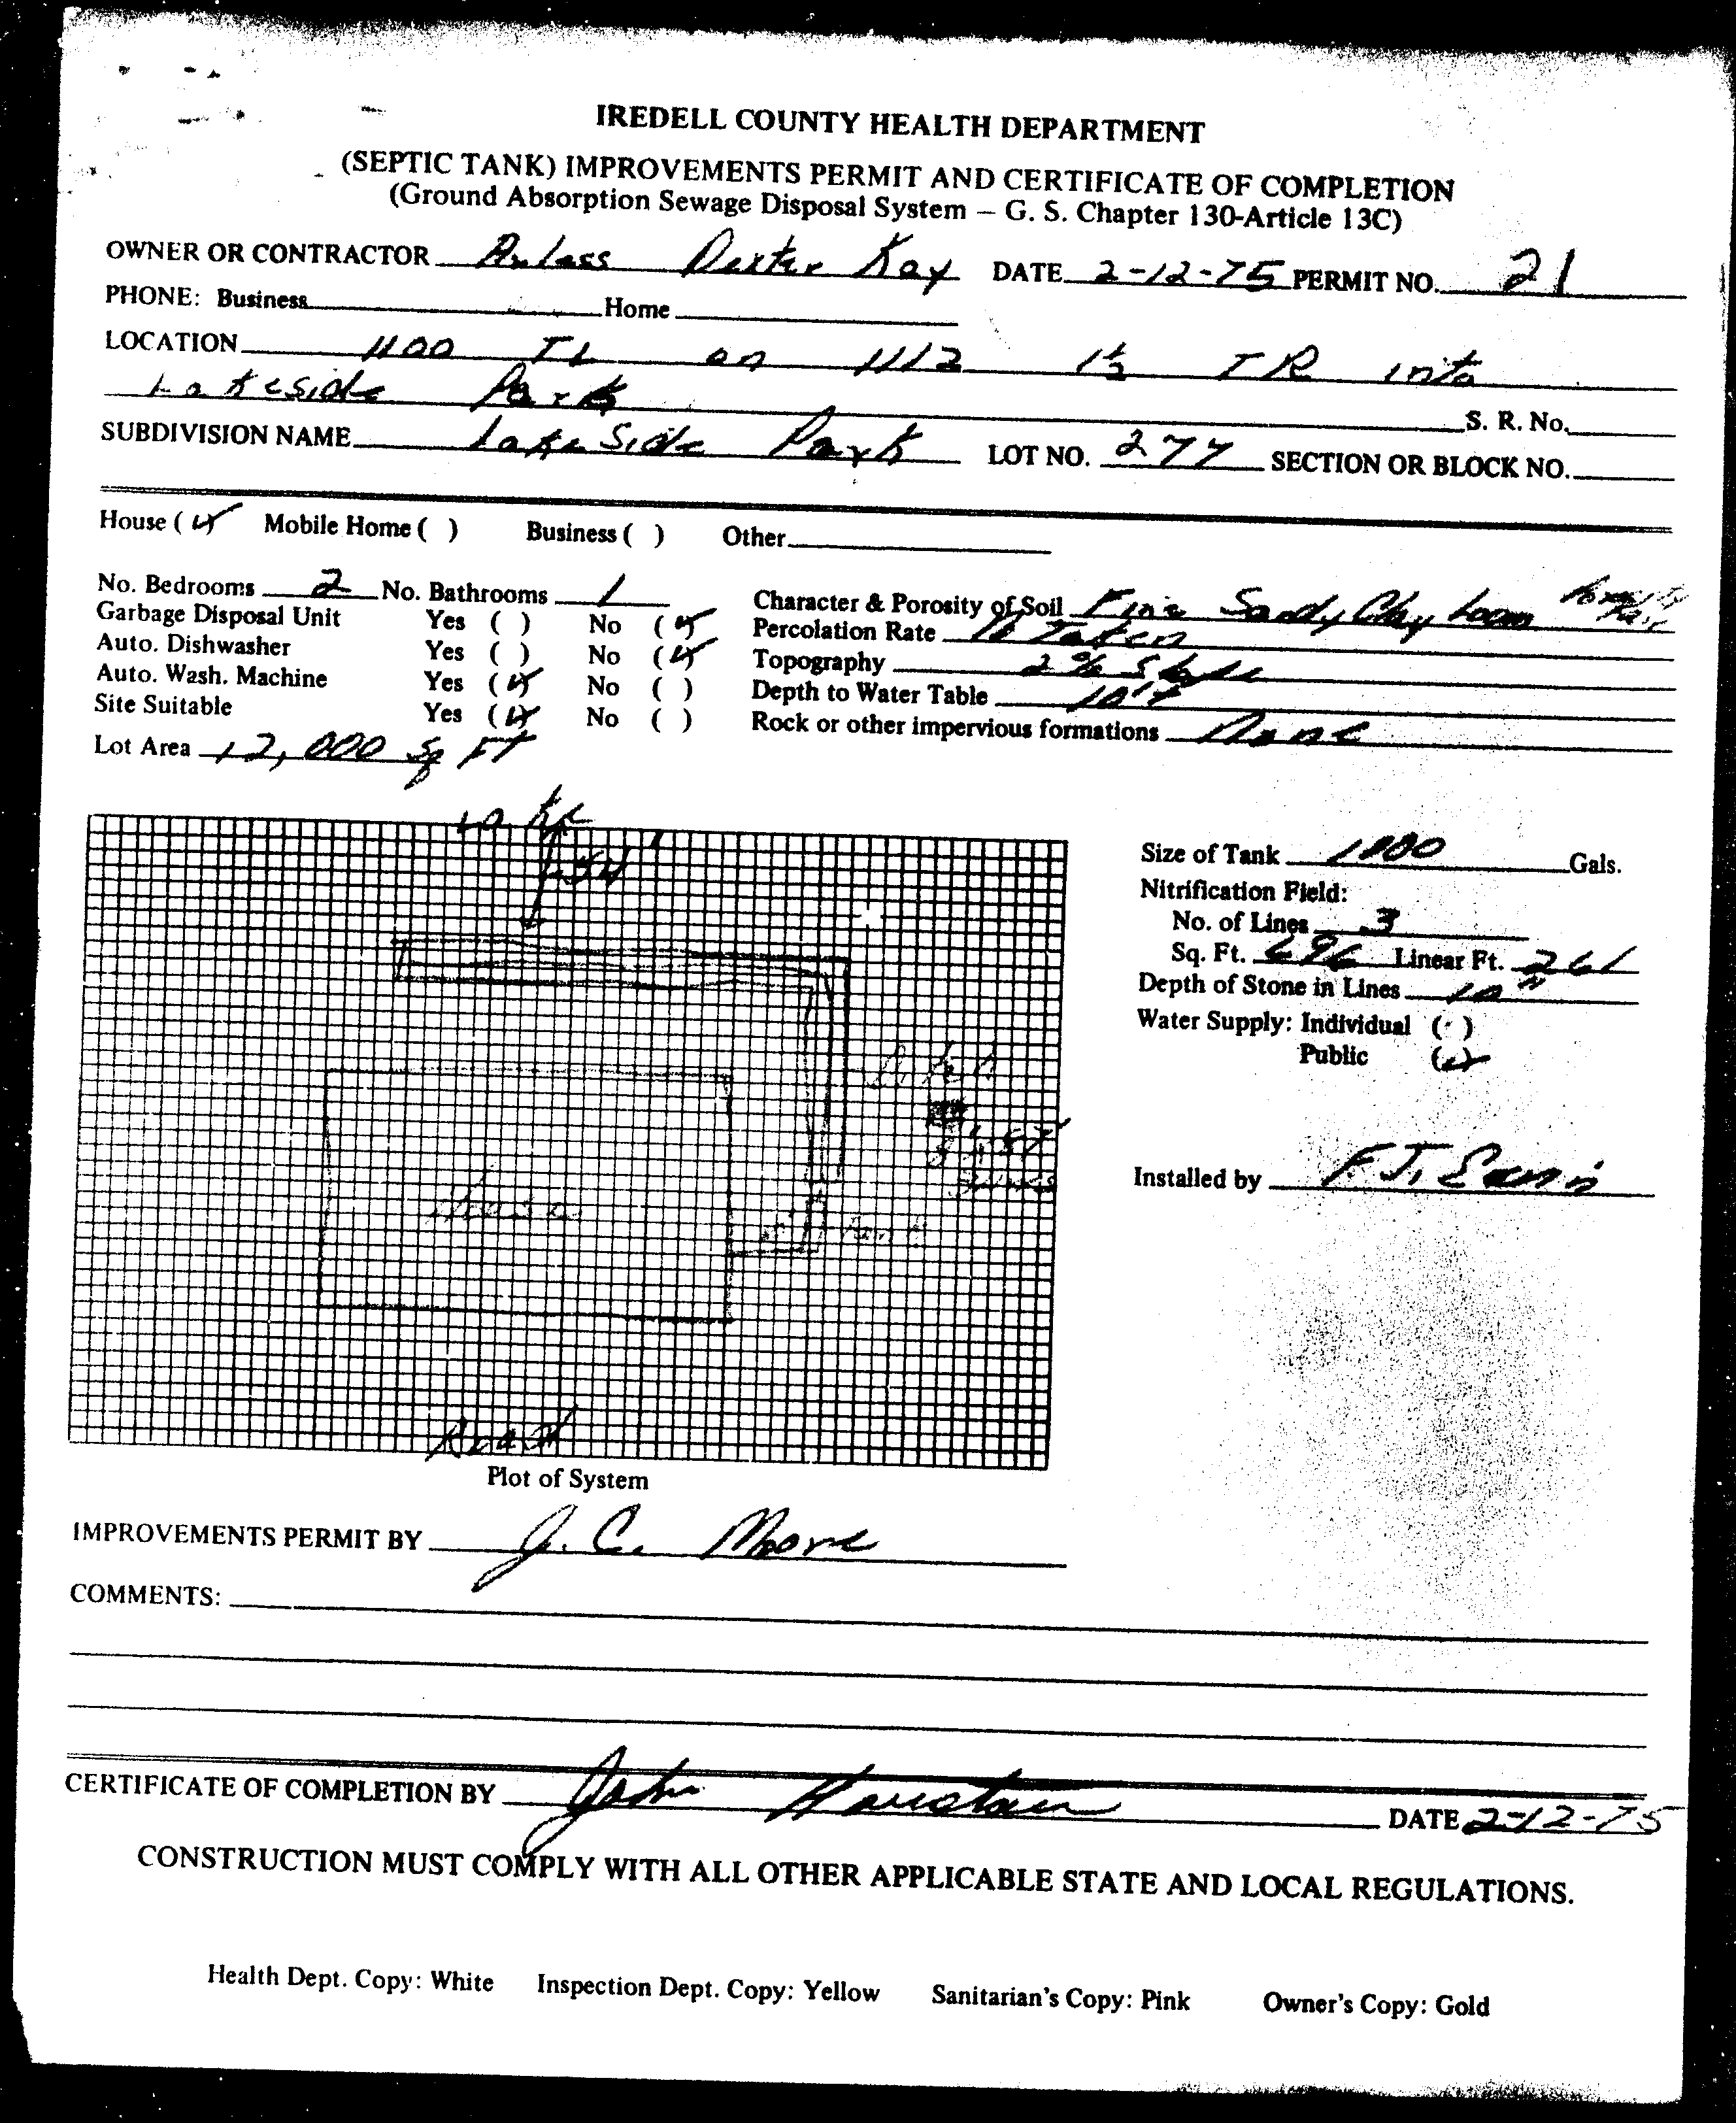 IREDELL COUNTY HEALTH DEPARTMENT
(SEPTIC TANK) IMPROVEMENTS PERMIT AND CERTIFICATE OF COMPLETION
(Ground Absorption Sewage Disposal System – G. S. Chapter 130-Article 13C)
OWNER OR CONTRACTOR Dexter Kay DATE 2-12-75 PERMIT NO. 21
PHONE: Business Home
LOCATION 1100 TL on 1112 1½ TR into
Lakeside Park S. R. No.
SUBDIVISION NAME Lakeside Park LOT NO. 277 SECTION OR BLOCK NO.
House ( ) Mobile Home ( ) Business ( ) Other
No. Bedrooms 2 No. Bathrooms 1
Garbage Disposal Unit Yes ( ) No (✓)
Auto. Dishwasher Yes ( ) No (✓)
Auto. Wash. Machine Yes (✓) No ( )
Site Suitable Yes (✓) No ( )
Lot Area 12,000 Sq FT
Character & Porosity of Soil Fine Sandy Clay Loam
Percolation Rate Taken
Topography 2% Slope
Depth to Water Table 10'+
Rock or other impervious formations None
Lake
54'
House
Road
Plot of System
Size of Tank 1000 Gals.
Nitrification Field:
No. of Lines 3
Sq. Ft. 696 Linear Ft. 261
Depth of Stone in Lines 10"
Water Supply: Individual ( )
Public (✓)
Installed by F. J.
IMPROVEMENTS PERMIT BY J. C. Moore
COMMENTS:
CERTIFICATE OF COMPLETION BY John DATE 2-12-75
CONSTRUCTION MUST COMPLY WITH ALL OTHER APPLICABLE STATE AND LOCAL REGULATIONS.
Health Dept. Copy: White Inspection Dept. Copy: Yellow Sanitarian's Copy: Pink Owner's Copy: Gold